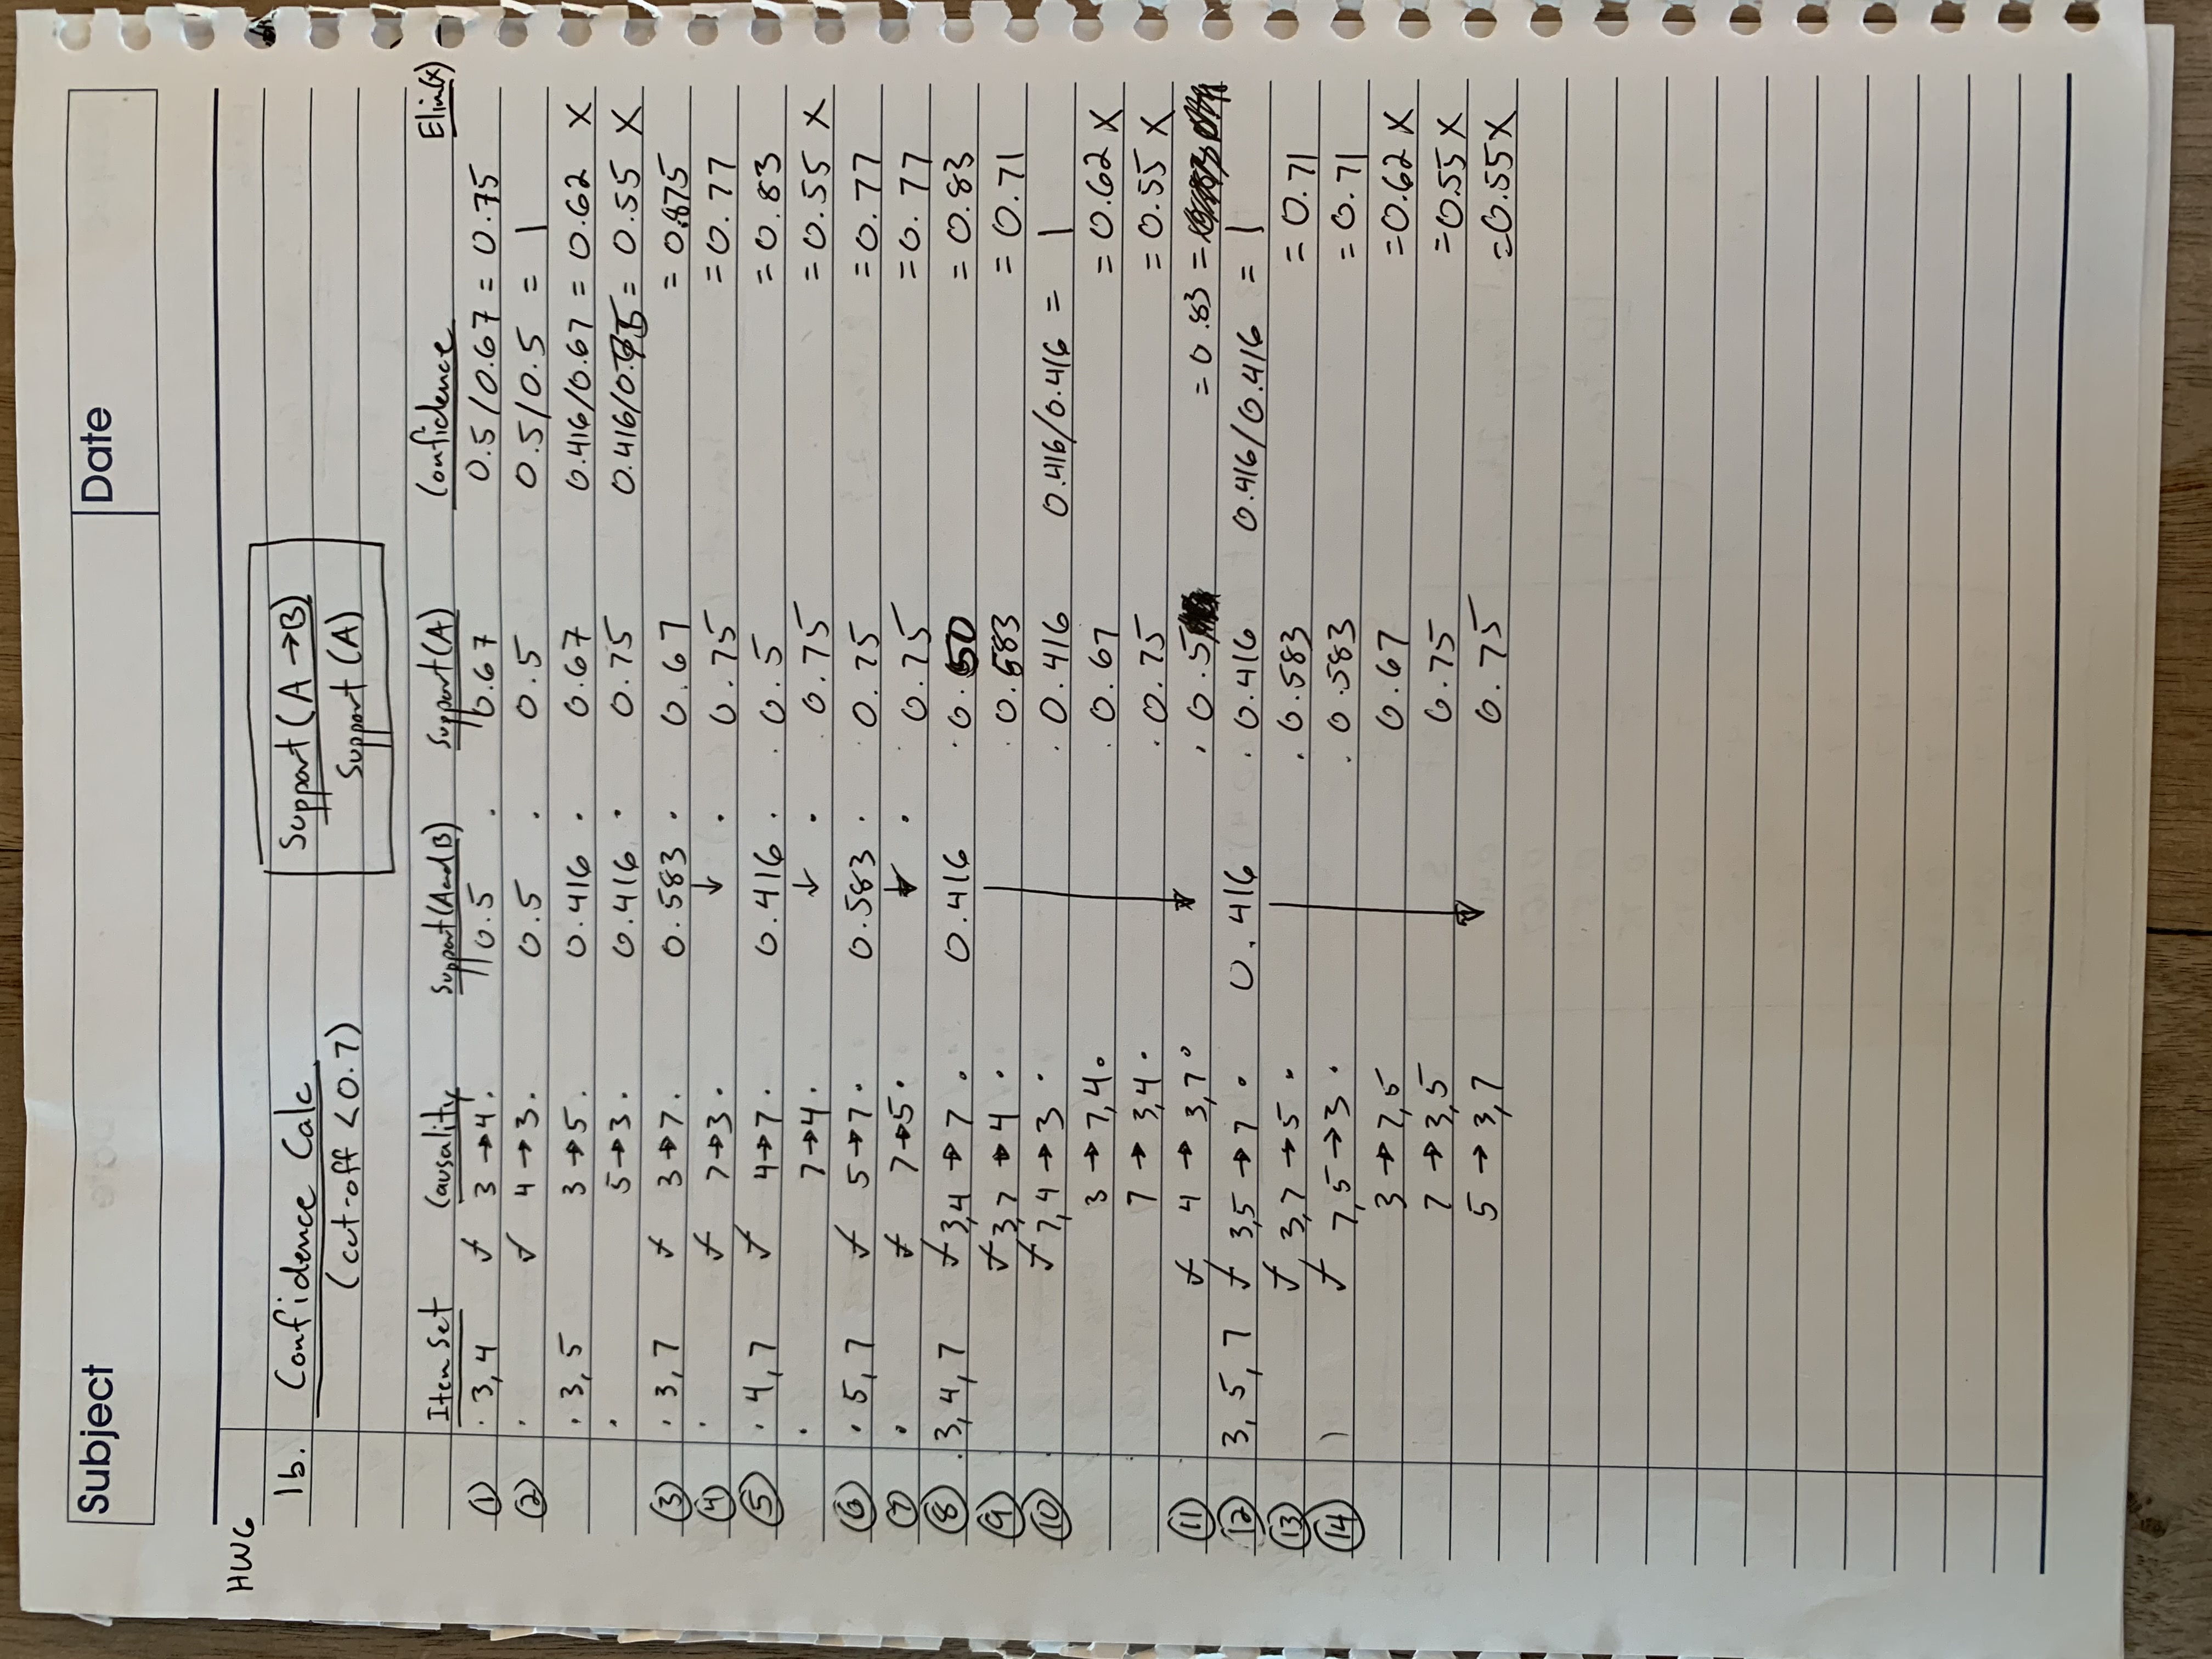 Subject Date
HW6
1b. Confidence Calc Support (A →B)
(cut-off <0.7) Support (A)
Item Set Causality Support (A and B) Support (A) Confidence Elim(x)
① · 3,4 ✓ 3 →4. 0.5 . 0.67 0.5/0.67 = 0.75
② · ✓ 4 →3. 0.5 . 0.5 0.5/0.5 = 1
· 3,5 3 →5. 0.416 · 0.67 0.416/0.67 = 0.62 X
· 5→3. 0.416 · 0.75 0.416/0.75 = 0.55 X
③ · 3,7 ✓ 3 →7. 0.583 · 0.67 = 0.875
④ · ✓ 7→3. ↓ · 0.75 =0.77
⑤ · 4,7 ✓ 4→7. 0.416 . . 0.5 =0.83
· 7→4. ↓ · 0.75 =0.55 X
⑥ · 5,7 ✓ 5 →7. 0.583 · 0.75 =0.77
⑦ · ✓ 7→5· ↓ · 0.75 =0.77
⑧ . 3,4,7 ✓ 3,4 → 7 . 0.416 ·0.50 = 0.83
⑨ ✓ 3,7 → 4 · 0.583 = 0.71
⑩ ✓ 7,4 → 3 · . 0.416 0.416/0.416 = 1
3 → 7,4. . 0.67 = 0.62 X
7 → 3,4 · . 0.75 = 0.55 X
⑪ ✓ 4 → 3,7 · . 0.5 = 0.83 =
⑫ 3,5,7 ✓ 3,5 →7 · 0.416 . 0.416 0.416/0.416 = 1
⑬ ✓ 3,7 →5 · . 0.583 = 0.71
⑭ ✓ 7,5→3 · . 0.583 = 0.71
3 → 7,5 0.67 =0.62 X
7 → 3,5 0.75 =0.55 X
5 → 3,7 0.75 =0.55 X